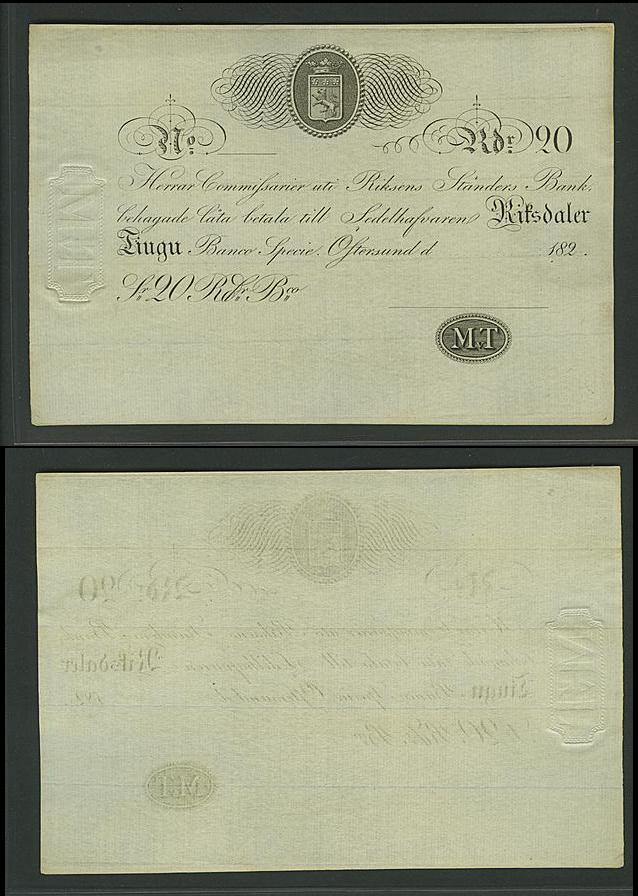 No Rdr 20
Herrar Commissarier uti Riksens Ständers Bank,
behagade låta betala till Sedelhafvaren Riksdaler
Tiugu Banco Specie. Östersund d 182 .
Sr 20 Rdr Bco
M.T